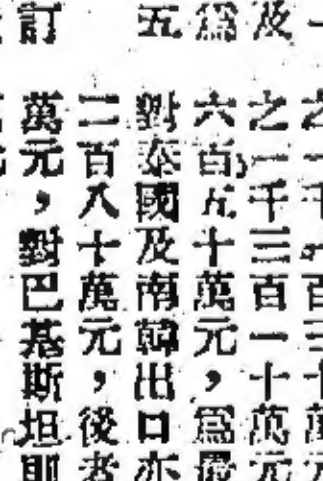 及　之一千三百一十萬元
爲　六百五十萬元，爲最
五　對泰國及南韓出口亦
二百八十萬元，後者
訂　萬元，對巴基斯坦則